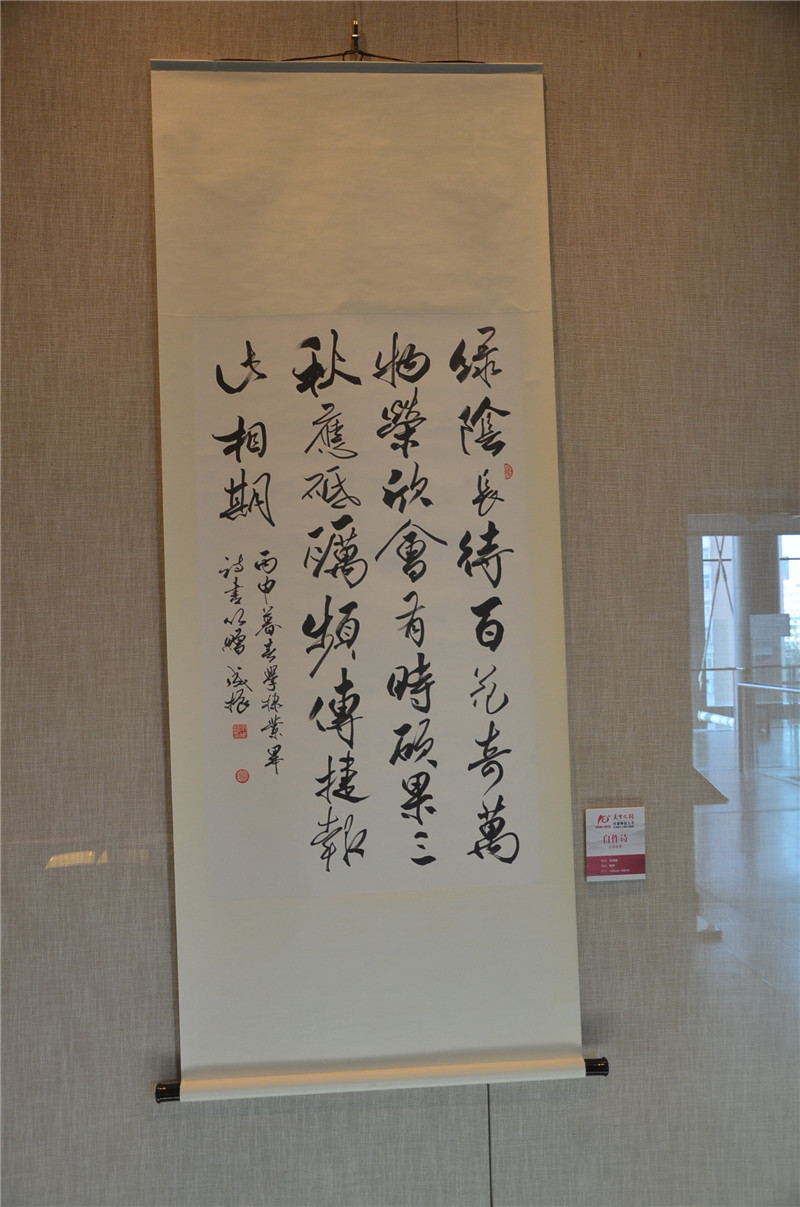 綠陰長待百花奇萬
物榮欣會有時碩果三
秋應砥礪頻傳捷報
此相期
丙申暮春學棣業畢
詩書以贈 成振
自作诗